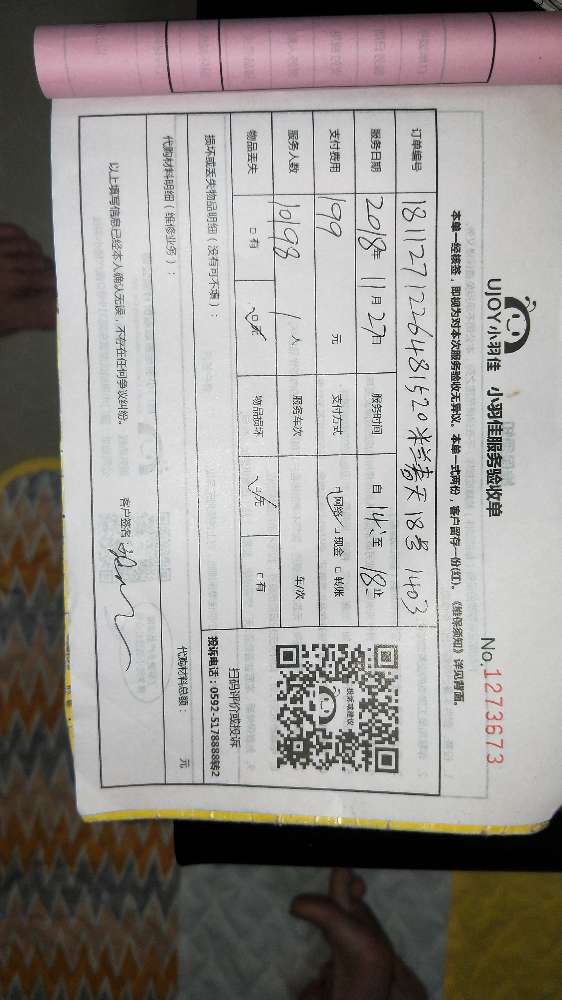 UJOY小羽佳 小羽佳服务验收单
No.1273673
本单一经核签，即视为对本次服务验收无异议。本单一式两份，客户留存一份(红)。《维保须知》详见背面。
订单编号 1811271226481520米兰春天 18号 1403
服务日期 2018年 11月 27日 服务时间 自 14 至 18 止
支付费用 199 元 支付方式 网络 现金 转账
服务人数 10198 1人 服务车次 车/次
物品丢失 有 无 物品损坏 无 有
扫码评价或投诉
投诉电话：0592-5178888转2
投诉或建议
损坏或丢失物品明细（没有可不填）：
代购材料明细（维修业务）： 代购材料总额： 元
以上填写信息已经本人确认无误，不存在任何争议纠纷。 客户签名：